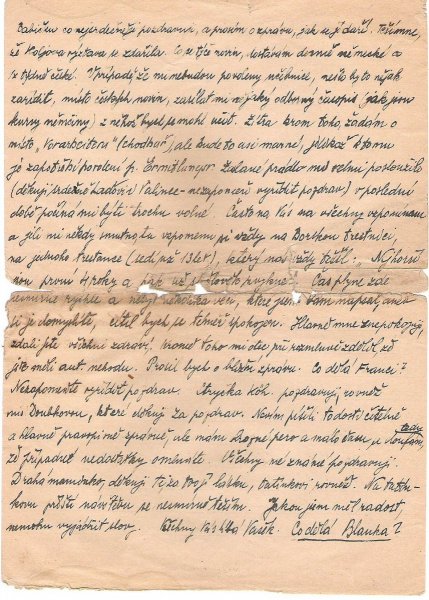 Babičku co nejsrdečněji pozdravuji, a prosím o zprávu, jak se jí daří. Přímně,
že Koljova výstava se zdařila. Co se týče novin, dostávám denně německé a
1x týdně české. V případě že mi nebudou povoleny učebnice, nešlo by to nějak
zařídit, místo českých novin, zasílat mi nějaký odborný časopis (jak jsou
kursy němčiny) z něhož bych se mohl učit. Zítra krom toho, žádám o
místo "Vorarbeitera" (schodbaře), ale bude to asi marné, jelikož k tomu
je zapotřebí povolení p. Ermittlungsr. Zaslané prádlo mi velmi posloužilo
(děkuji srdečně Láďovi a Valince - nezapomeni vyřídit pozdrav) v poslední
době počíná mi býti trochu volné. Často na Vás na všechny vzpomínám
a jsli mi někdy smutno, tu vzpomenu si vždy na Borském trestnici,
na jednoho trestance (seděl již 13 let), který nás vždy těšil: "Nejhorší
jsou první 4 roky a pak už to
Čas plyne zde
rychle a nebýt několika věcí, které jsem Vám napsal, aneb
si je domyslíte, cítil bych se téměř spokojen. Hlavně mne znepokojuje,
zdali jste všichni zdrávi. Kromě toho mi otec při rozmluvě zdělil, že
jste měli aut. nehodu. Prosil bych o bližší zprávu. Co dělá Franci?
Nezapomeňte vyřídit pozdrav. Strýčka Köh. pozdravuji, rovněž
mis Doubkovou, které děkuji za pozdrav. Nevím píši-li to dosti čitelně
a hlavně pravopisně správně, ale mám drápné pero a málo času, a tedy doufám,
že případné nedostatky omluvíte. Všechny mé známé pozdravuji.
Drahá maminko, děkuji Ti za tvojí lásku, tatínkovi rovněž. Na tatín-
kovu příští návštěvu se nesmírně těším. Jakou jsem měl radost
nemohu vyjádřit slovy. Všechny Vás líbá Vašek. Co dělá Blanka?